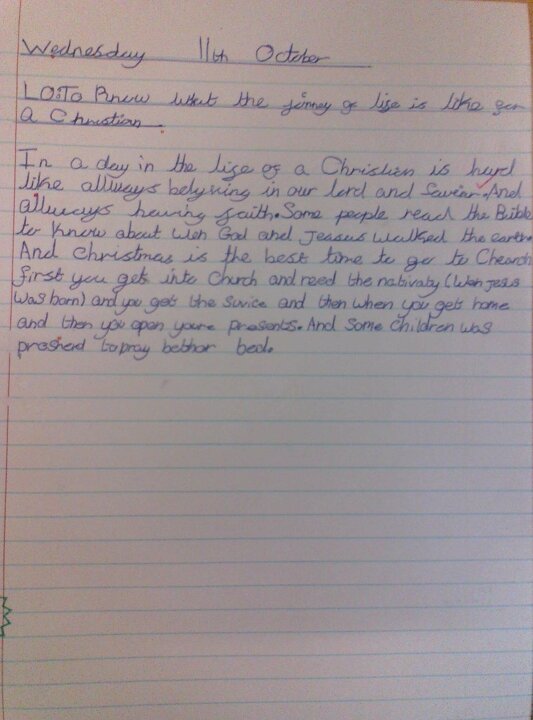 Wednesday 11th October
LO:To Know what the jonney of life is like for
a Christian.
In a day in the life of a Christien is hard
like allways belyving in our lord and Saviar. And
allways having faith. Some people read the Bible
to know about wen God and Jeasus walked the earth.
And Christmas is the best time to go to Chearch
first you gets into Church and reed the nativaty (Wen jesus
was born) and you get the Suvice and then when you gets home
and then you open youre presents. And Some children was
preshed to pray bethor bed.